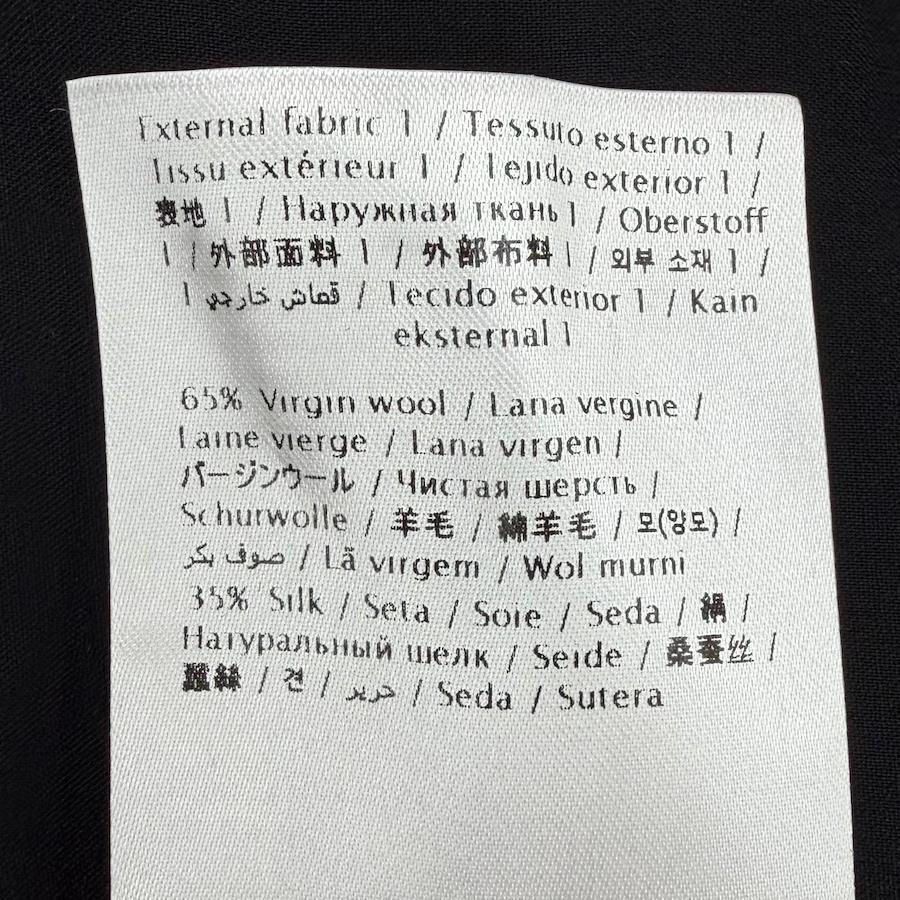 External fabric 1 / Tessuto esterno 1 /
Tissu extérieur 1 / Tejido exterior 1 /
表地 1 / Наружная ткань 1 / Oberstoff
1 / 外部面料 1 / 外部布料 1 / 외부 소재 1 /
قماش خارجي 1 / Tecido exterior 1 / Kain
eksternal 1
65% Virgin wool / Lana vergine /
Laine vierge / Lana virgen /
バージンウール / Чистая шерсть /
Schurwolle / 羊毛 / 綿羊毛 / 모(양모) /
صوف بكر / Lã virgem / Wol murni
35% Silk / Seta / Soie / Seda / 絹 /
Натуральный шелк / Seide / 桑蚕丝 /
蠶絲 / 견 / حرير / Seda / Sutera